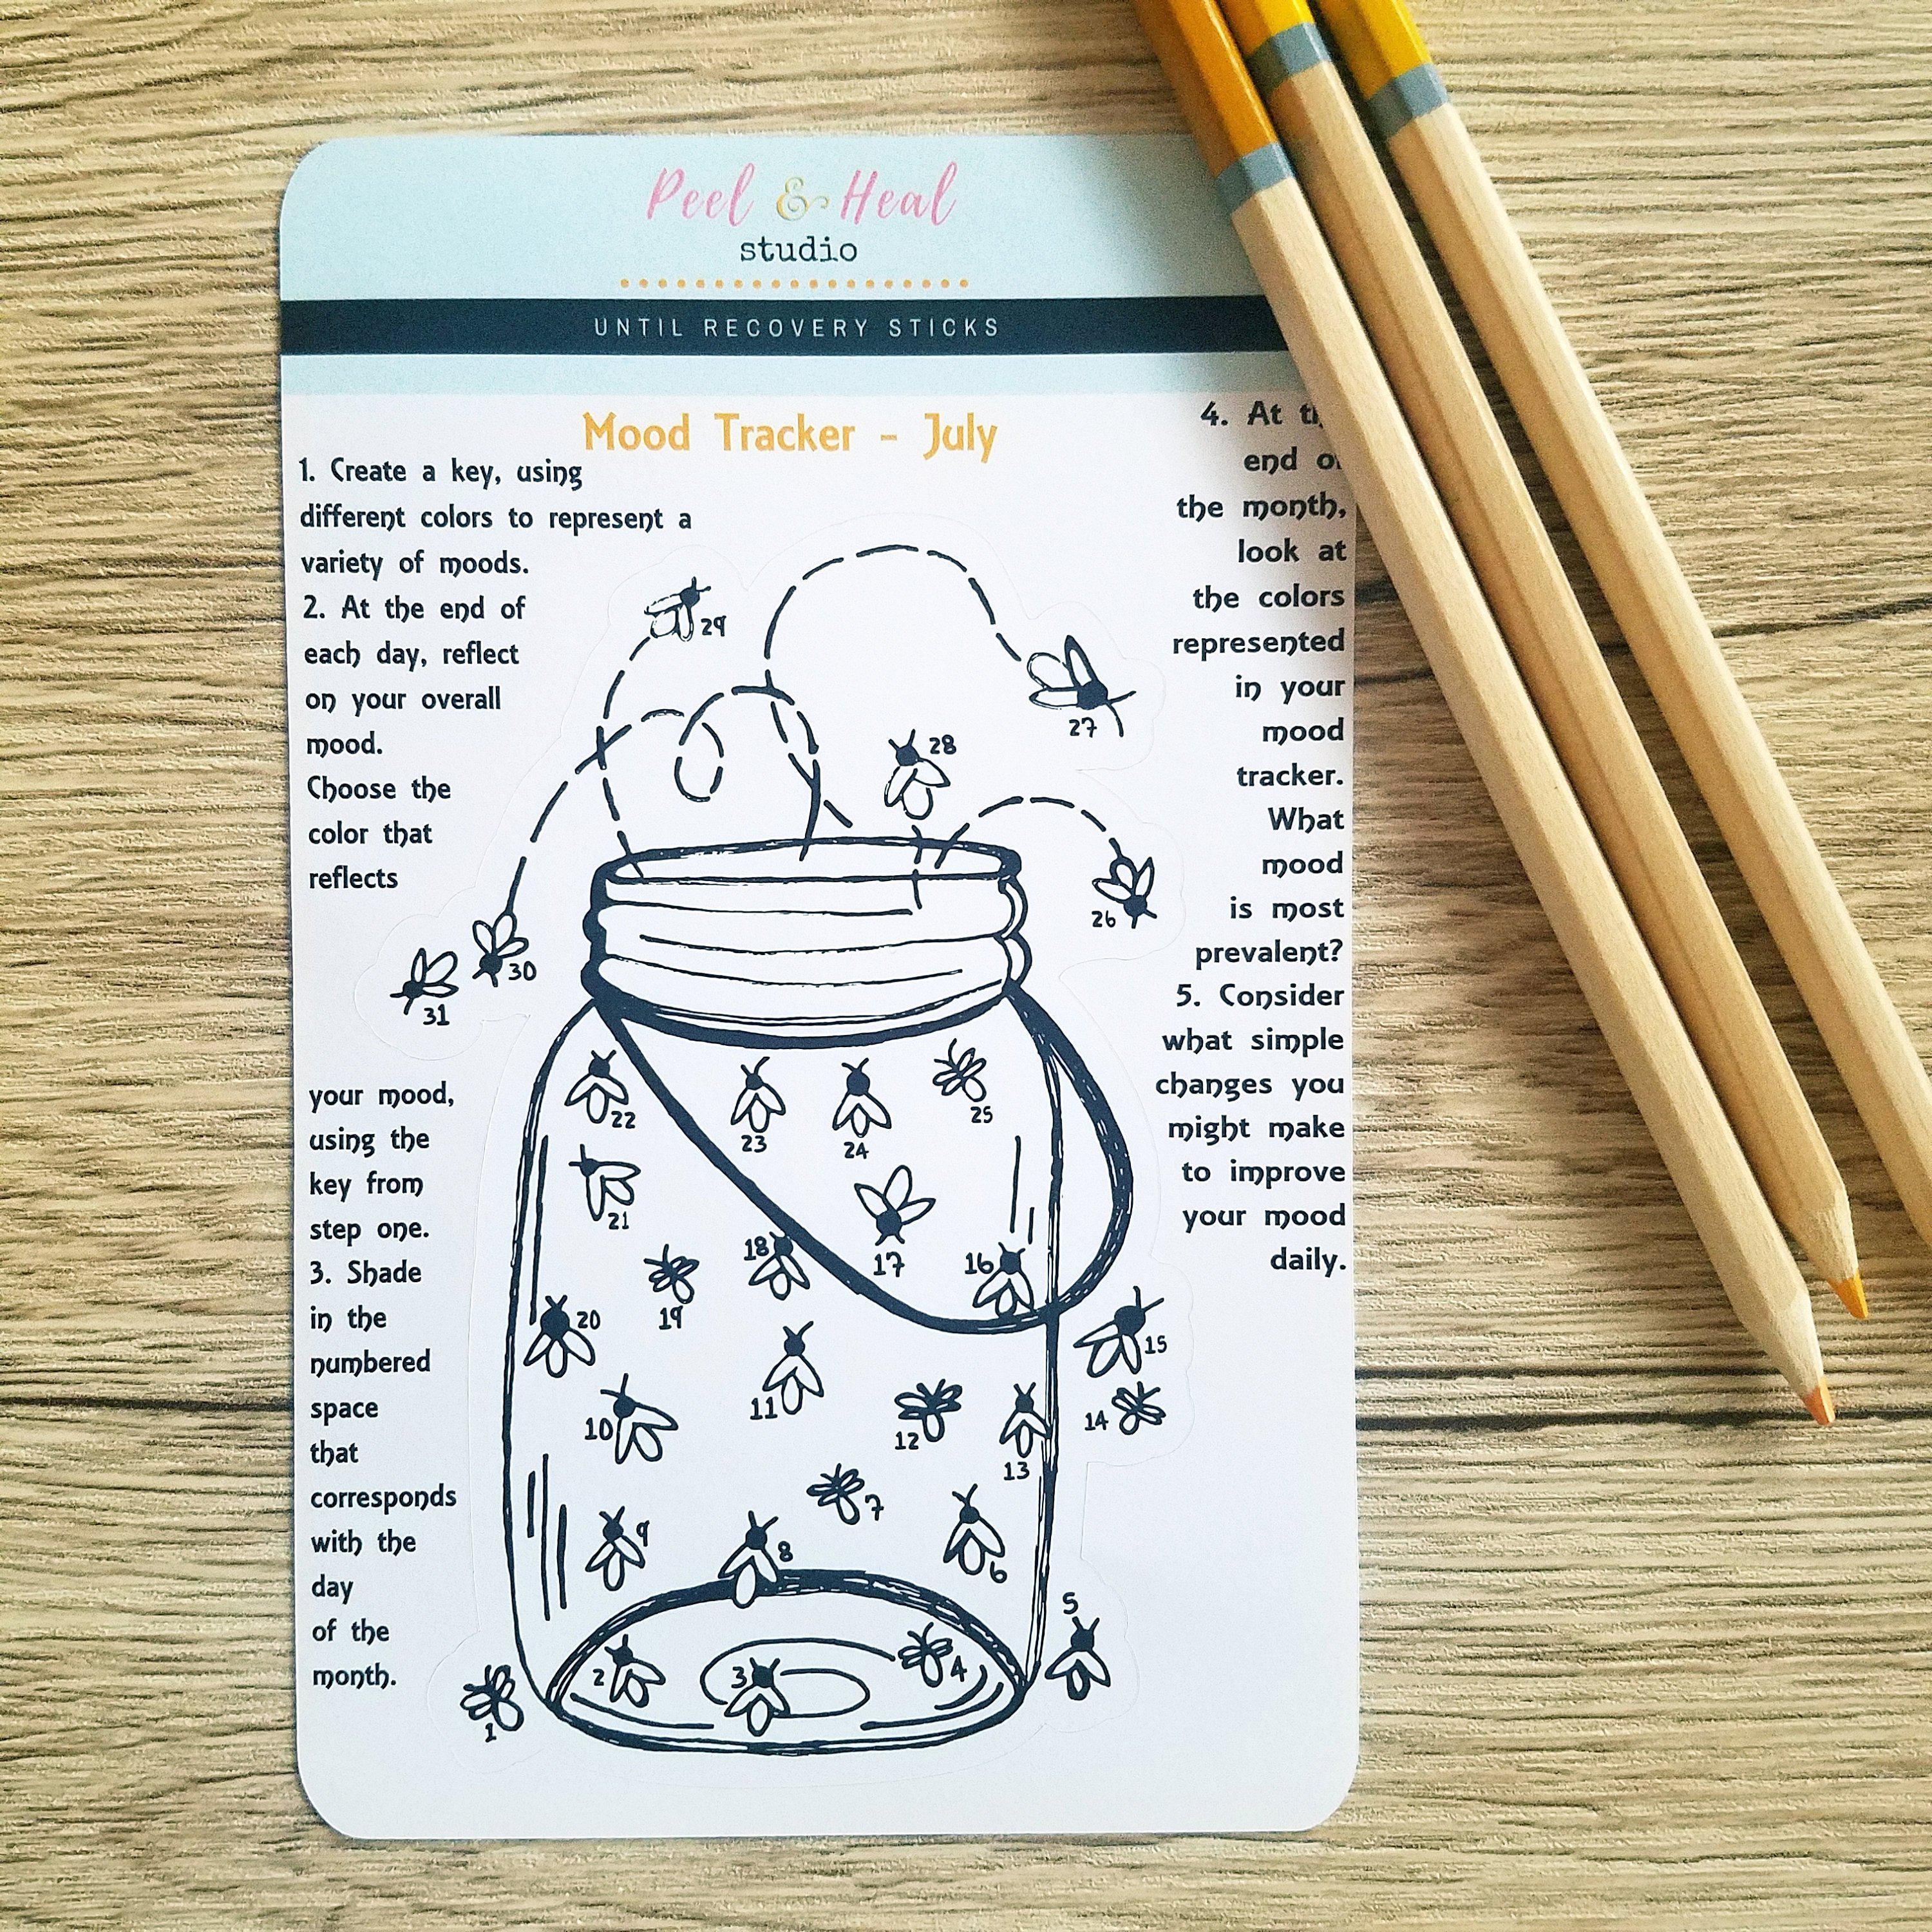 Peel & Heal
studio
UNTIL RECOVERY STICKS
Mood Tracker - July
1. Create a key, using
different colors to represent a
variety of moods.
2. At the end of
each day, reflect
on your overall
mood.
Choose the
color that
reflects
your mood,
using the
key from
step one.
3. Shade
in the
numbered
space
that
corresponds
with the
day
of the
month.
4. At
end
the month,
look at
the colors
represented
in your
mood
tracker.
What
mood
is most
prevalent?
5. Consider
what simple
changes you
might make
to improve
your mood
daily.
29
27
28
26
30
31
22
23
24
25
21
17
18
16
19
20
15
11
10
12
14
13
7
9
8
6
5
2
3
4
1